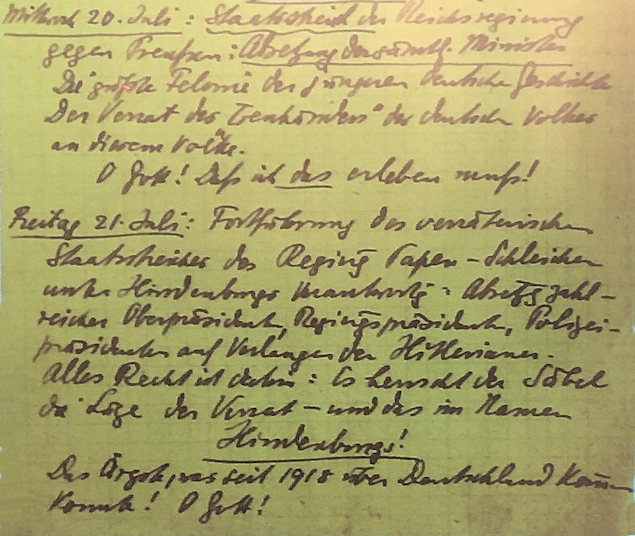 Mittwoch 20. Juli: Staatsstreich der Reichsregierung
gegen Preußen: Absetzung der sämtl. Minister
Die größte Felonie der jüngeren deutschen Geschichte
Der Verrat des "Treuhänders" des deutschen Volkes
an diesem Volke.
O Gott! Daß ich das erleben muß!
Freitag 21. Juli: Fortführung des verräterischen
Staatsstreiches der Regierg Papen-Schleicher
unter Hindenburgs Verantwortg: Absetzg zahl-
reicher Oberpräsidenten, Regierungspräsidenten, Polizei-
präsidenten auf Verlangen der Hitlerianer.
Alles Recht ist dahin: Es herrscht der Säbel
die Lüge der Verrat - und das im Namen
Hindenburgs!
Das Ärgste, was seit 1918 über Deutschland kommen
konnte! O Gott!